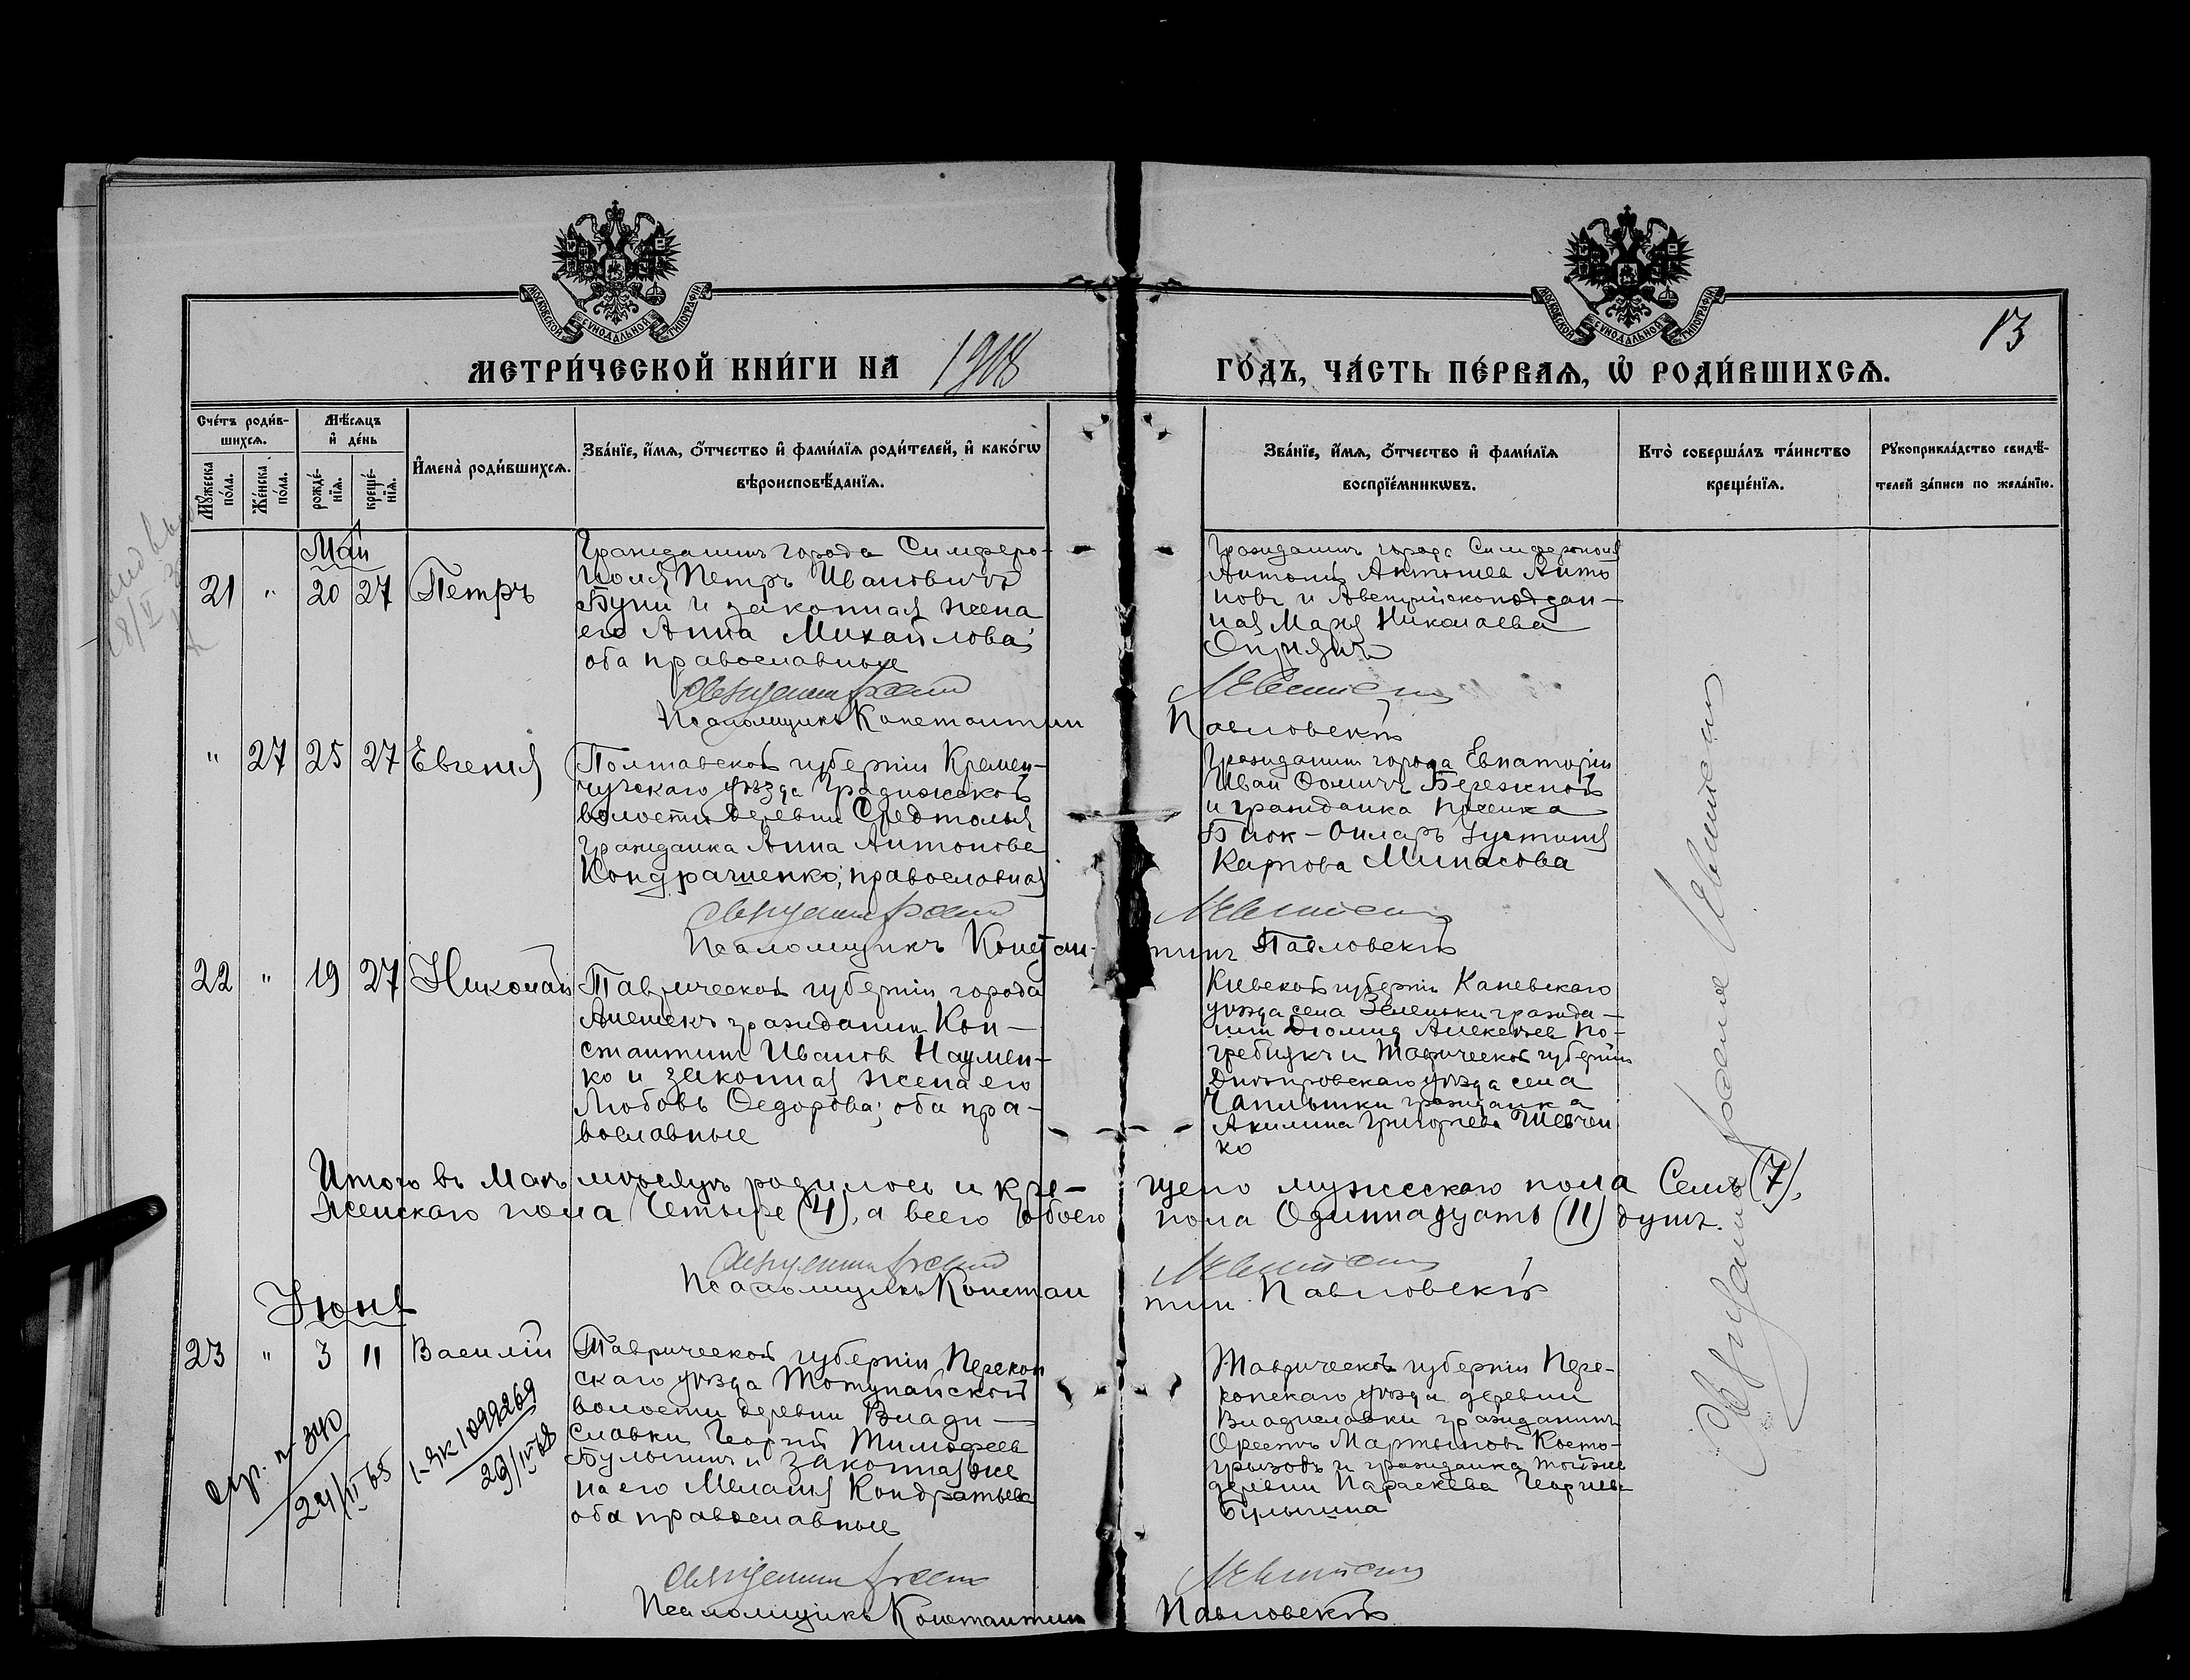 МОСКОВСКОЙ СѴНОДАЛЬНОЙ ТИПОГРАФІИ
МОСКОВСКОЙ СѴНОДАЛЬНОЙ ТИПОГРАФІИ
13
МЕТРИ́ЧЕСКОЙ КНИ́ГИ НА 1918 ГО́ДЪ, ЧА́СТЬ ПЕ́РВАѦ, Ѡ РОДИ́ВШИХСѦ.
Сче́тъ роди́в-
шихсѧ.
Мꙋжеска по́ла.
Же́нска по́ла.
Мѣ́сѧцъ
и҆ де́нь
рожде́-
нїѧ.
креще́-
нїѧ.
И҆мена̀ роди́вшихсѧ.
Зва́нїе, и҆́мѧ, ѻ҆́тчество и҆ фами́лїѧ роди́телей, и҆ како́гѡ
вѣроисповѣ́данїѧ.
Зва́нїе, и҆́мѧ, ѻ҆́тчество и҆ фами́лїѧ
воспрїе́мникѡвъ.
Кто̀ соверша́лъ та́инство
креще́нїѧ.
Рꙋкоприкла́дство свидѣ́-
телей за́писи по жела́нїю.
Май
21 " 20 27 Петръ
Гражданинъ города Симферо-
поля Петръ Ивановичъ
Буни и законная жена
его Анна Михайлова;
оба православные
Гражданинъ города Симферополя
Антоній Антоніев Анто
новъ и Австрійскоподдан-
ная Марія Николаева
Священникъ Василій Левитскій
Псаломщикъ Константин Павловскій
" 27 25 27 Евгенія
Полтавской губерніи Кремен-
чугскаго уѣзда Градижской
волости деревни
гражданка Анна Антонова
Кондрашенко; православная
Гражданин города Евпаторіи
Иван Фомичъ Бережной
и гражданка поселка
Біюк-Онларъ Іустинія
Карпова Минасова
Священникъ Василій Левитскій
Псаломщикъ Констан-тинъ Павловскій
22 " 19 27 Николай
Таврической губерніи города
Алешекъ гражданин Кон-
стантинъ Иванов Наумен-
ко и законная жена его
Любовь Ѳедорова; оба пра-
вославные
Кіевской губерніи Каневскаго
уѣзда села Зеленьки гражда-
нин Діомид Алексѣев По-
гребицкъ и Таврической губерніи
Днѣпровскаго уѣзда села
Чаплынки гражданка
Акилина Григорьева Шевчен
ко
Итого въ Маѣ мѣсяцѣ родилось и кре-щено мужескаго пола Семь (7),
женскаго пола Четыре (4), а всего обоего пола Одиннадцать (11) душъ.
Священникъ Василій Левитскій
Псаломщикъ Констан тин Павловскій
Іюнь
23 " 3 11 Василій
Таврической губерніи Перекоп
скаго уѣзда Тотунайской
волости деревни Влади-
славки Георгій Тимофеев
Булыгинъ и законная же
на его Меланія Кондратьева
оба православные
Таврической губерніи Пере-
копскаго уѣзда деревни
Владиславки гражданинъ
Орестъ Мартыновъ Косто-
грызовъ и гражданка той же
деревни Параскева Георгіева
Булыгина
24/II 65
I-ЯК 1099269
29/IV 68
Священникъ Василій Левитскій
Псаломщикъ Константин Павловскій
Священникъ Василій Левитскій